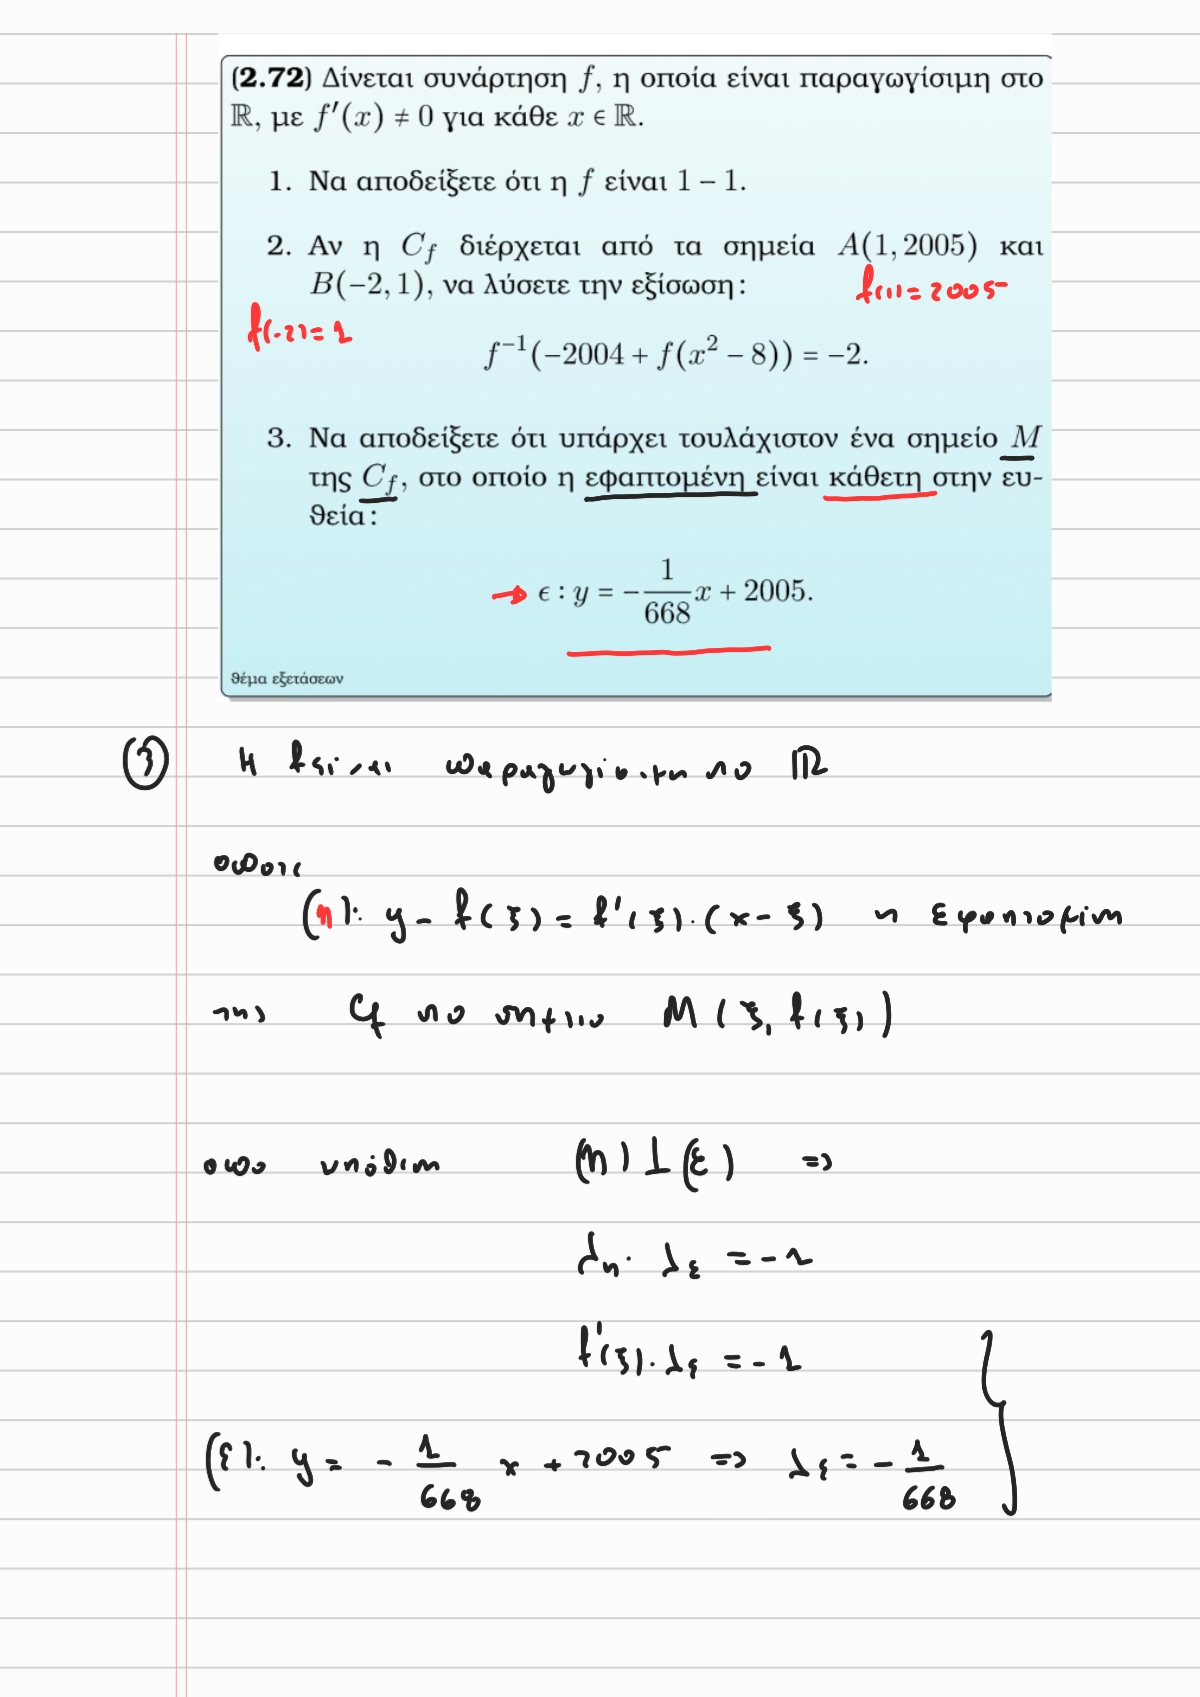 (2.72) Δίνεται συνάρτηση f, η οποία είναι παραγωγίσιμη στο
ℝ, με f′(x) ≠ 0 για κάθε x ∈ ℝ.
1. Να αποδείξετε ότι η f είναι 1 − 1.
2. Αν η C_f διέρχεται από τα σημεία A(1, 2005) και
B(−2, 1), να λύσετε την εξίσωση:
f(1) = 2005
f(-2) = 1
f⁻¹(−2004 + f(x² − 8)) = −2.
3. Να αποδείξετε ότι υπάρχει τουλάχιστον ένα σημείο M
της C_f, στο οποίο η εφαπτομένη είναι κάθετη στην ευ-
θεία:
→ ϵ : y = −1/668 x + 2005.
θέμα εξετάσεων
③ Η f είναι παραγωγίσιμη στο ℝ
οπότε
(η): y - f(ξ) = f'(ξ)·(x - ξ) η εφαπτομένη
της C_f στο σημείο M(ξ, f(ξ))
απο υπόθεση (η) ⊥ (ε) =>
λ_η · λ_ε = -1
f'(ξ) · λ_ε = -1
(ε): y = - 1/668 x + 2005 => λ_ε = - 1/668